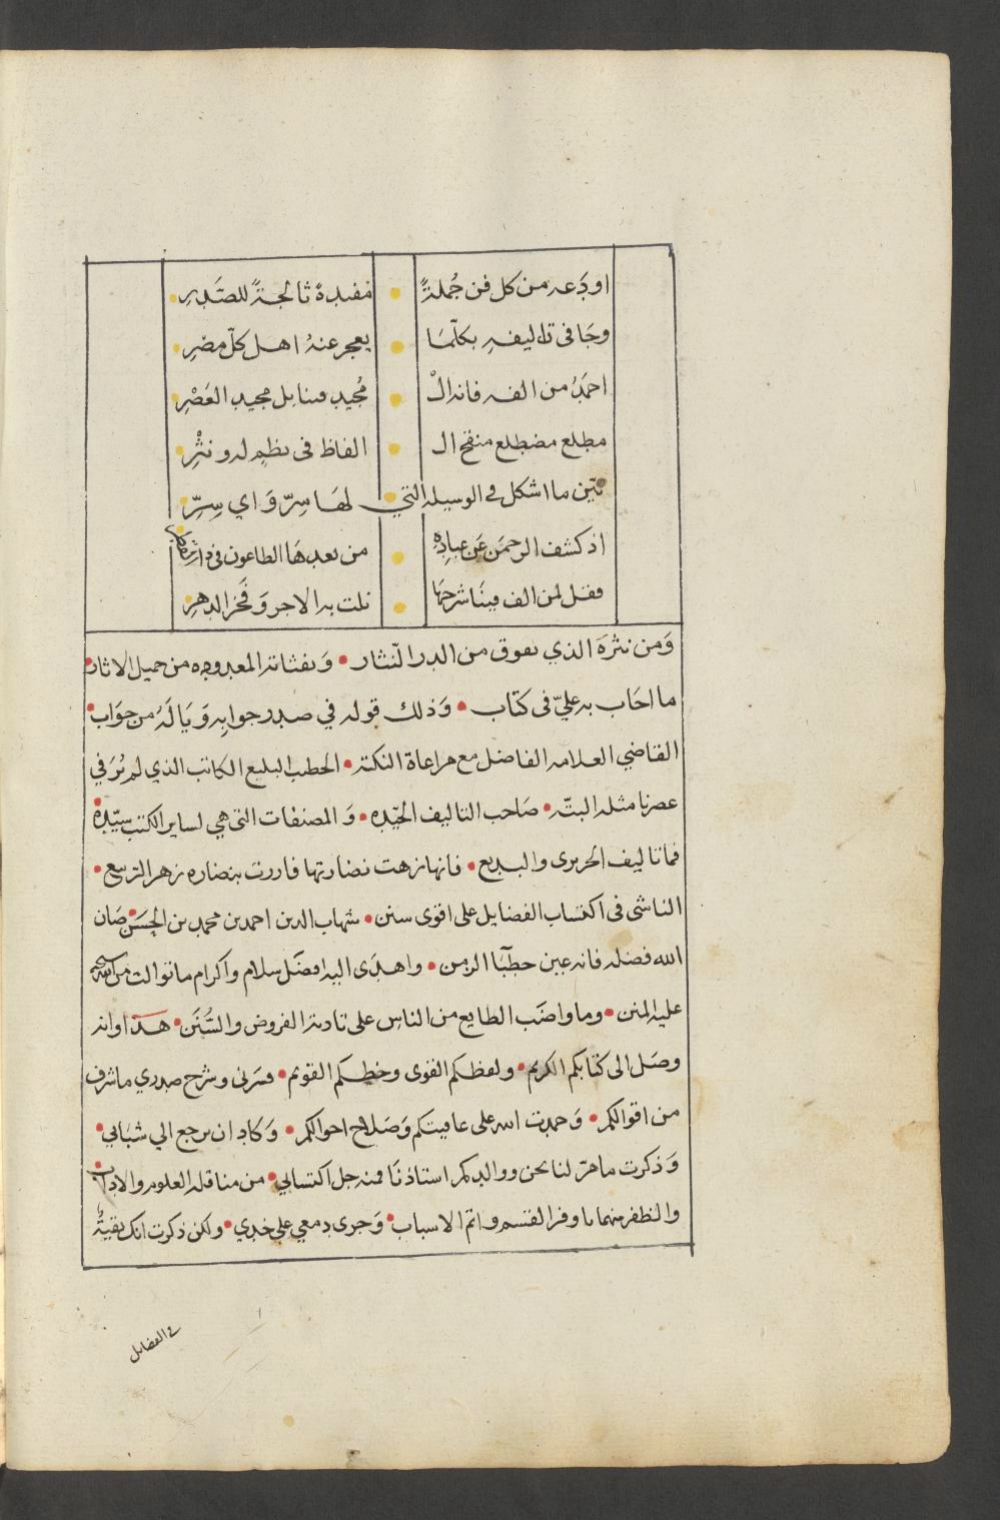 اودَعه من كل فن جُملةً • مفيدةً ثالجةً للصَدرِ •
وجَا فى تاليفهِ بكلّما • يعجز عنهُ اهل كلّ مصرِ •
احمَدُ من الفه فانه الْ • مُجيد فينا بل مجيد العَصْرِ •
مطلع مضطلع منقح ال • الفاظ فى نظمٍ له ونثْرِ •
تبين ما اشكل فى الوسيلة التي • لهَا سِرّ وَاي سِرّ •
اذ كشف الرحمَن عَن عبادِهِ • من بعدهَا الطاعون فى
فقل لمن الف فينَا شرحهَا • نلت به الاجر وَفخر الدهرِ
وَمن نثرهَ الذي يفوق من الدر النّثار • وَنفثاته المعدوده من جميل الاثار •
ما اجَاب به عليّ فى كتاب • وَذلك قوله في صدر جوابِه وَيَالَهُ من جوَاب •
القاضي العلامه الفاضل مع مراعاة النكته • الخطيب البليع الكاتب الذي لم نرَ في
عصرنا مثله البتّه • صَاحب التاليف الجيّده • وَالمصنفات التى هي لساير الكتب سيّدة •
فما تاليف الحريرى والبديع • فانها نزهت نضارتها فازرت بنضاره زهر الربيع •
الناشى فى اكتساب الفضايل على اقوى سنن • شهاب الدين احمد بن محمد بن الحِسَن • صَان
الله فضله فانه عين خطبَا الزمن • واهدَى اليه افضَل سلام واكرام ما توالت من الله
عليه المنن • وما واضَب الطايع من الناس على تادية الفروض والسُّنَن • هَذا وانه
وصَل الى كتابكم الكريم • ولفظكم القوى وخطكم القويم • فسَرنى وشرح صدري ما شرف
من اقوالكم • وَحمدت الله على عافيتكم وَصَلاح احوالكم • وَكاد ان يرجع الي شبَابي •
وَذكرت ما مرّ لنا نحن ووالدكم استاذنَا فمنه جل اكتسابي • من مناقله العلوم والاداب •
والظفر منهما باوفر القسم واتم الاسباب • وَجرى دمعي على خدي • ولكن ذكرت انك بقيةُ
فى الفضايل